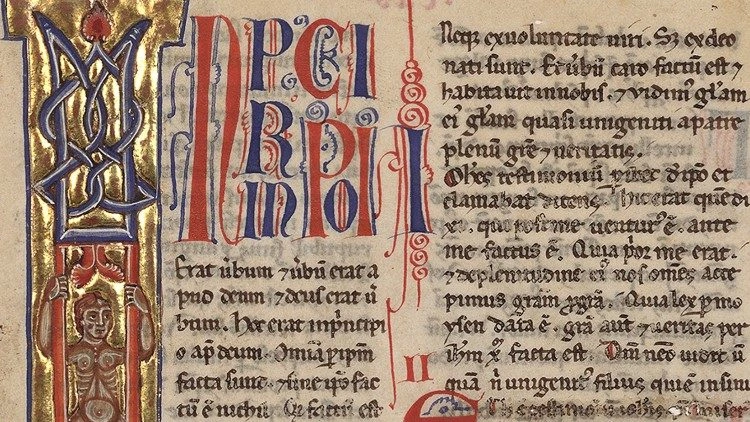 N P CI
R PI
IN O
Erat ūbum ⁊ ūbū erat a
pud deum ⁊ deus erat ū
bum. Hoc erat inpͥncipi
o ap̄ deum. Omīa ꝑ ip̄m
facta sunt. ⁊ sine ip̄o fac
tū ē nichil. Qđ factū est
Neq; ex uoluntate uiri. S; ex deo
nati sunt. Et ūbū caro factū est ⁊
habitauit in nobis. ⁊ vidimꝰ gl̄am
eiꝰ gl̄am quasi unigeniti a patre
plenū gr̄e ⁊ ueritatis.
Ioh̄es testimoniū ꝑibet de ip̄o et
clamabat dicens. hic erat quē di
xi. qui post me uenturꝰ ē. ante
me factus ē. Quia pͥor me erat.
⁊ de plenitudine eiꝰ nos om̄es acce
pimus grām ꝓ grā. Quia lex ꝑ mo
ysen data ē. grā aut̄ ⁊ ueritas per
ih̄m xp̄m facta est. Dm̄ nēo uidit ū
quā n̄ unigenitꝰ filius qui ē in sinu
II